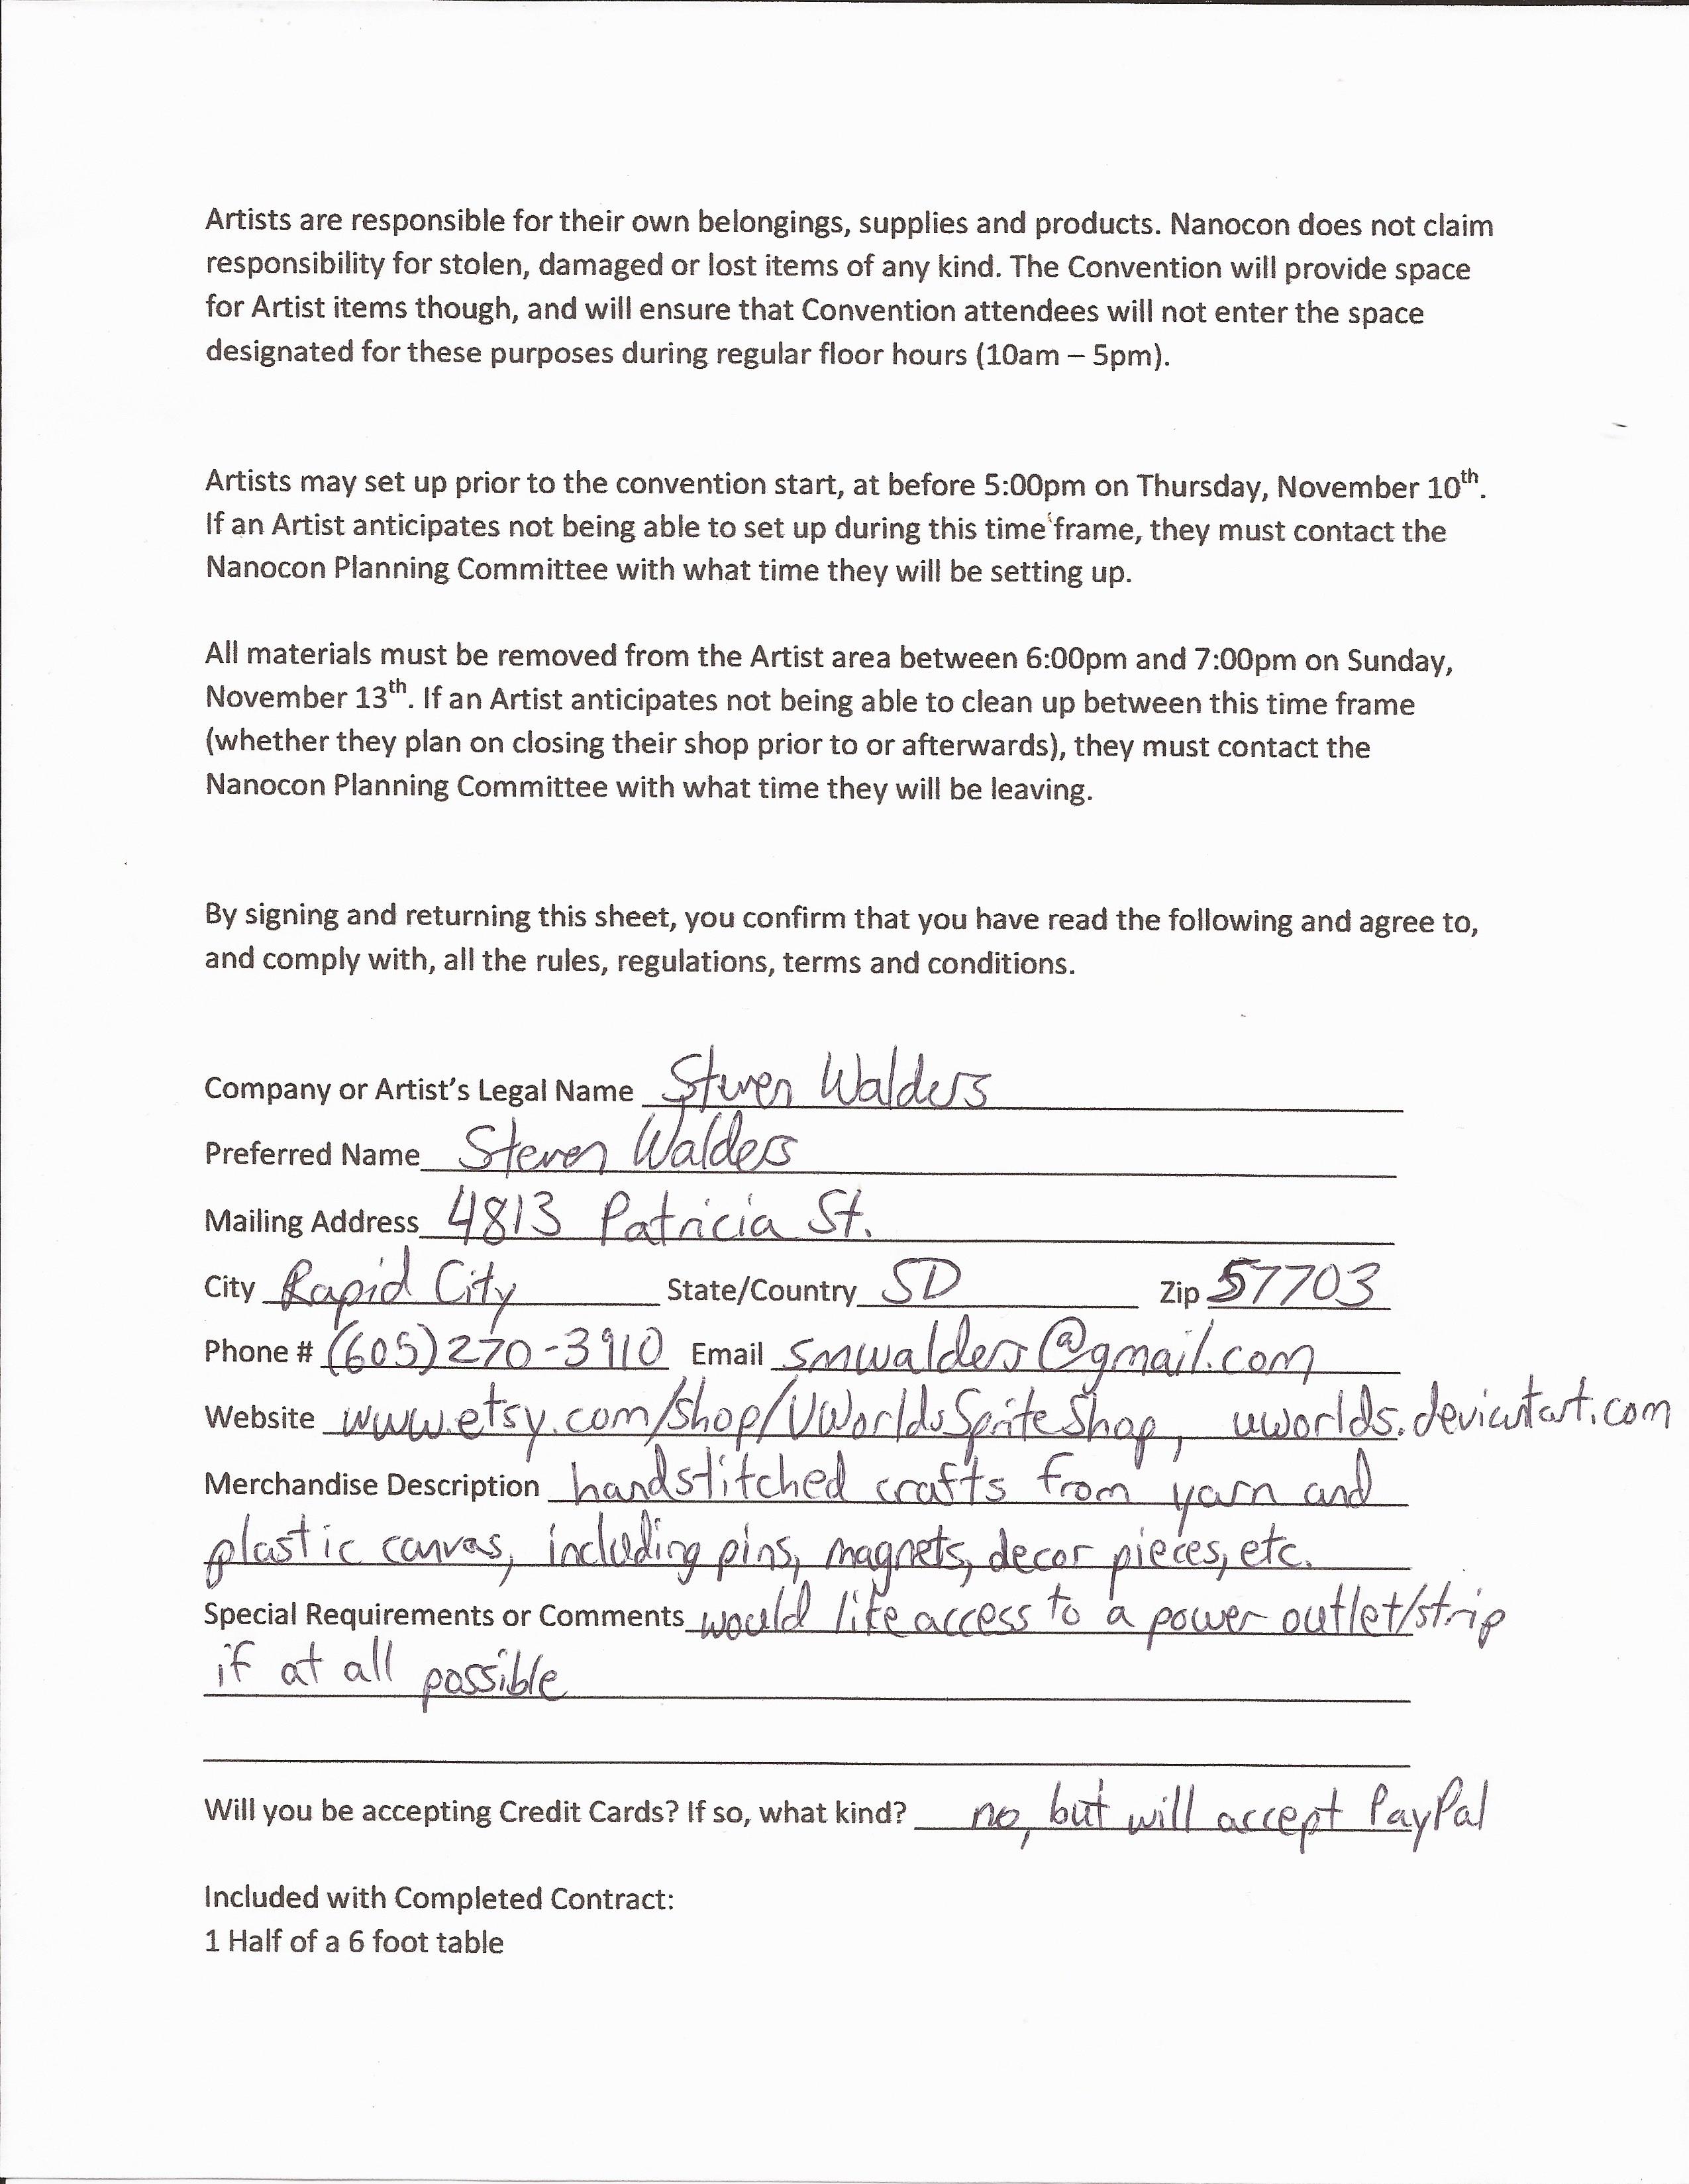 Artists are responsible for their own belongings, supplies and products. Nanocon does not claim
responsibility for stolen, damaged or lost items of any kind. The Convention will provide space
for Artist items though, and will ensure that Convention attendees will not enter the space
designated for these purposes during regular floor hours (10am – 5pm).
Artists may set up prior to the convention start, at before 5:00pm on Thursday, November 10th.
If an Artist anticipates not being able to set up during this time frame, they must contact the
Nanocon Planning Committee with what time they will be setting up.
All materials must be removed from the Artist area between 6:00pm and 7:00pm on Sunday,
November 13th. If an Artist anticipates not being able to clean up between this time frame
(whether they plan on closing their shop prior to or afterwards), they must contact the
Nanocon Planning Committee with what time they will be leaving.
By signing and returning this sheet, you confirm that you have read the following and agree to,
and comply with, all the rules, regulations, terms and conditions.
Company or Artist's Legal Name Steven Walders
Preferred Name Steven Walders
Mailing Address 4813 Patricia St.
City Rapid City State/Country SD Zip 57703
Phone # (605)270-3910 Email smwalders@gmail.com
Website www.etsy.com/shop/UWorldsSpriteShop, uworlds.deviantart.com
Merchandise Description handstitched crafts from yarn and
plastic canvas, including pins, magnets, decor pieces, etc.
Special Requirements or Comments would like access to a power outlet/strip
if at all possible
Will you be accepting Credit Cards? If so, what kind? no, but will accept PayPal
Included with Completed Contract:
1 Half of a 6 foot table